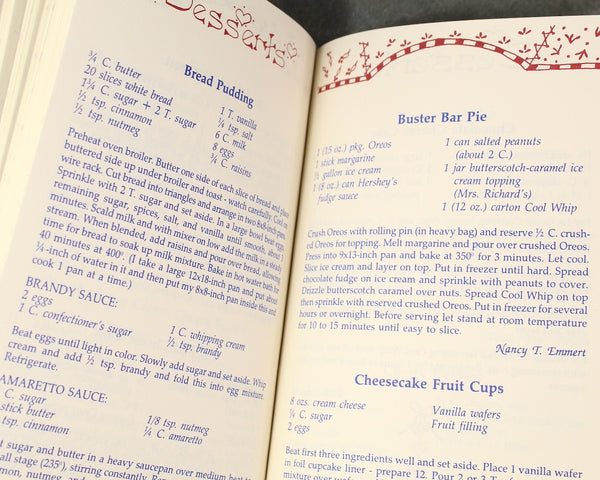 Desserts
Bread Pudding
¾ C. butter
20 slices white bread
1¾ C. sugar + 2 T. sugar
½ tsp. cinnamon
½ tsp. nutmeg
1 T. vanilla
¼ tsp. salt
6 C. milk
8 eggs
¾ C. raisins
Preheat oven broiler. Butter one side of each slice of bread and place
buttered side up under broiler and toast - watch carefully. Cool on
wire rack. Cut bread into triangles and arrange in two 8x8-inch pans.
Sprinkle with 2 T. sugar and set aside. In a large bowl beat eggs,
remaining sugar, spices, salt, and vanilla until smooth, about 3
minutes. Scald milk and with mixer on low add the milk in a steady
stream. When blended, add raisins and pour over bread, allowing
time for bread to soak up milk mixture. Bake in hot water bath for
40 minutes at 400°. (I take a large 12x18-inch pan and put about
¼-inch of water in it and then put my 8x8-inch pan inside this and
cook 1 pan at a time.)
BRANDY SAUCE:
2 eggs
1 C. confectioner's sugar
1 C. whipping cream
½ tsp. brandy
Beat eggs until light in color. Slowly add sugar and set aside. Whip
cream and add ½ tsp. brandy and fold this into egg mixture.
Refrigerate.
AMARETTO SAUCE:
C. sugar
stick butter
tsp. cinnamon
1/8 tsp. nutmeg
¼ C. amaretto
sugar and butter in a heavy saucepan over medium heat
all stage (235°), stirring constantly.
Buster Bar Pie
1 (15 oz.) pkg. Oreos
1 stick margarine
½ gallon ice cream
1 (8 oz.) can Hershey's
fudge sauce
1 can salted peanuts
(about 2 C.)
1 jar butterscotch-caramel ice
cream topping
(Mrs. Richard's)
1 (12 oz.) carton Cool Whip
Crush Oreos with rolling pin (in heavy bag) and reserve ½ C. crush-
ed Oreos for topping. Melt margarine and pour over crushed Oreos.
Press into 9x13-inch pan and bake at 350° for 3 minutes. Let cool.
Slice ice cream and layer on top. Put in freezer until hard. Spread
chocolate fudge on ice cream and sprinkle with peanuts to cover.
Drizzle butterscotch caramel over nuts. Spread Cool Whip on top
then sprinkle with reserved crushed Oreos. Put in freezer for several
hours or overnight. Before serving let stand at room temperature
for 10 to 15 minutes until easy to slice.
Nancy T. Emmert
Cheesecake Fruit Cups
8 ozs. cream cheese
¼ C. sugar
2 eggs
Vanilla wafers
Fruit filling
Beat first three ingredients well and set aside. Place 1 vanilla wafer
in foil cupcake liner - prepare 12. Pour 2 or 3 T. of
mixture over